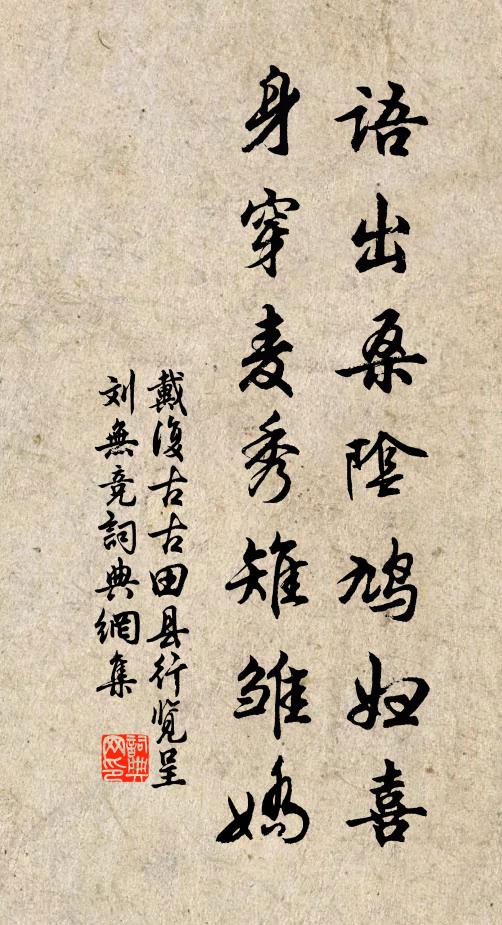 语出桑阴鸠妇喜
身穿麦秀雉雏娇
戴復古古田县行览呈
刘無竞詞典網集
詞典
网印